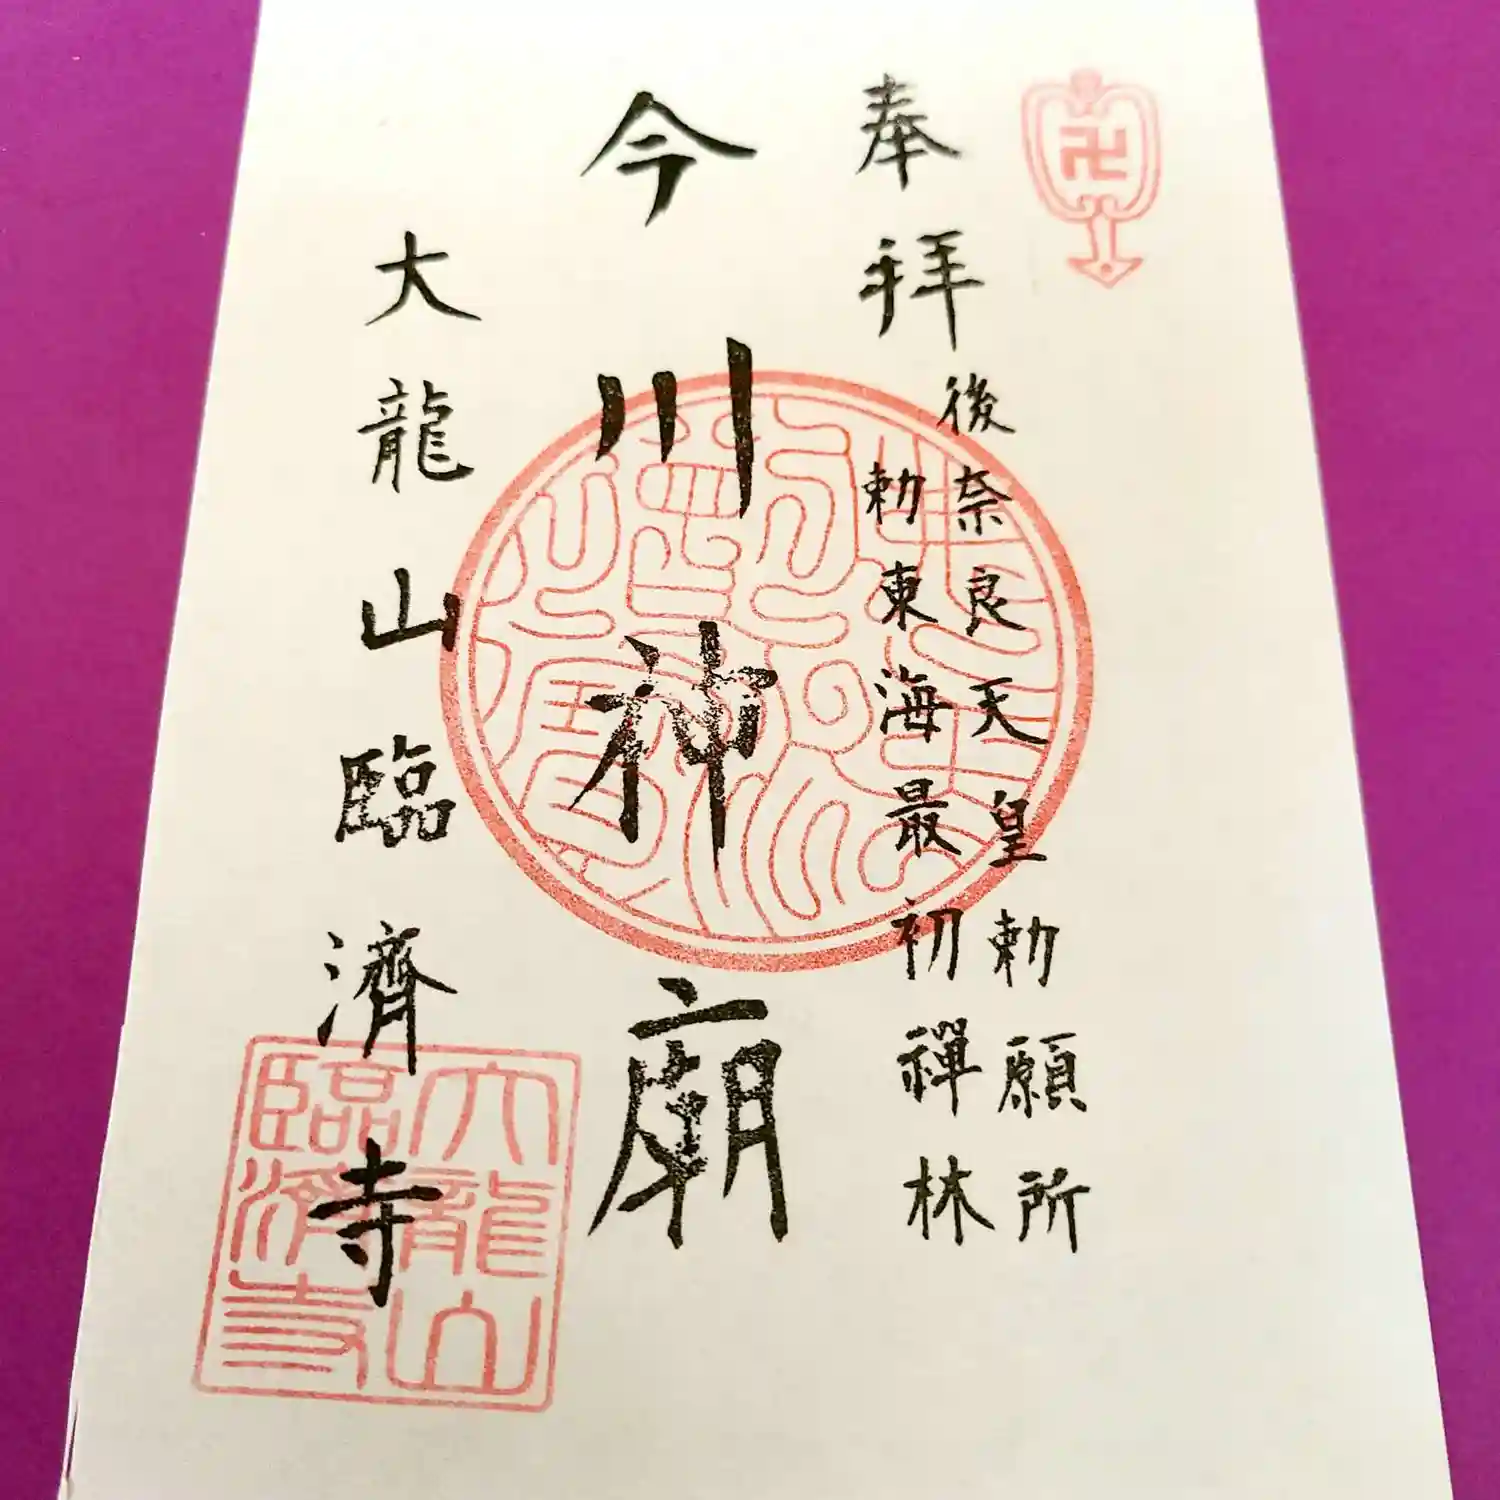 卍
奉拝
後奈良天皇勅願所
勅東海最初禅林
今川神廟
大龍山臨済寺
大龍山
臨済寺